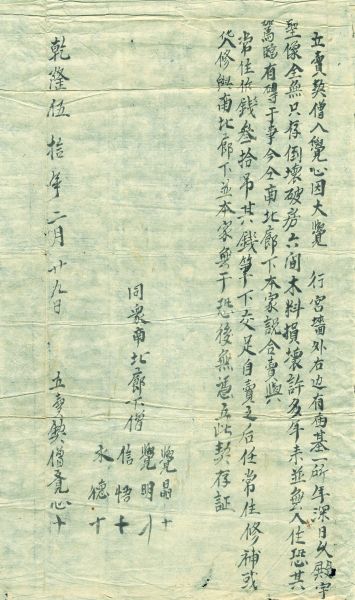 立賣契僧人覺心因大覺　行宮墻外右边有庙基一所年深日久殿宇
聖像全無只存倒壞破房六间木料損壞許多年来並無人住恐其
駕臨有碍于事今仝南北廊下本家説合賣與
常住作錢叁拾吊其錢筆下交足自賣之后任常住修補或
修 南北廊下並本家無干恐後無憑立此契存証
同衆南北廊下僧
覺晶十
覺明十
信悟十
永德十
乾隆伍拾年二月廿九日　立賣契僧覺心十